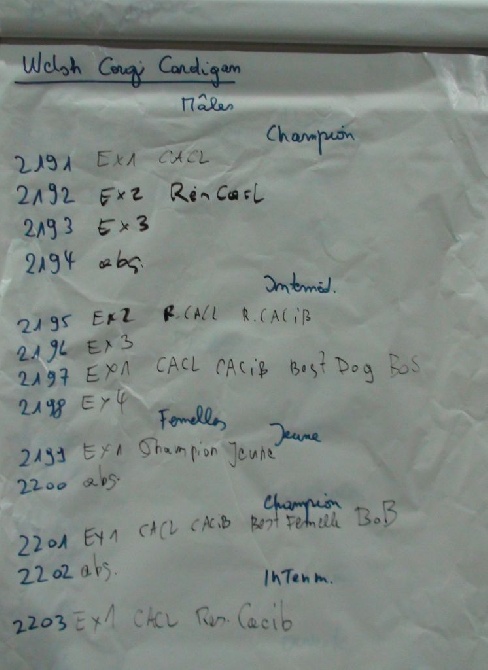 Welsh Corgi Cardigan
Mâles
Champion
2191 Ex1 CACL
2192 Ex2 Res CACL
2193 Ex3
2194 abs.
Intermed.
2195 Ex2 R.CACL R.CACiB
2196 Ex3
2197 Ex1 CACL CACiB Best Dog BoS
2198 Ex4
Femelles
Jeune
2199 Ex1 Shampion Jeune
2200 abs.
Champion
2201 Ex1 CACL CACiB Best Femelle BoB
2202 abs.
InTerm.
2203 Ex1 CACL Res. Cacib